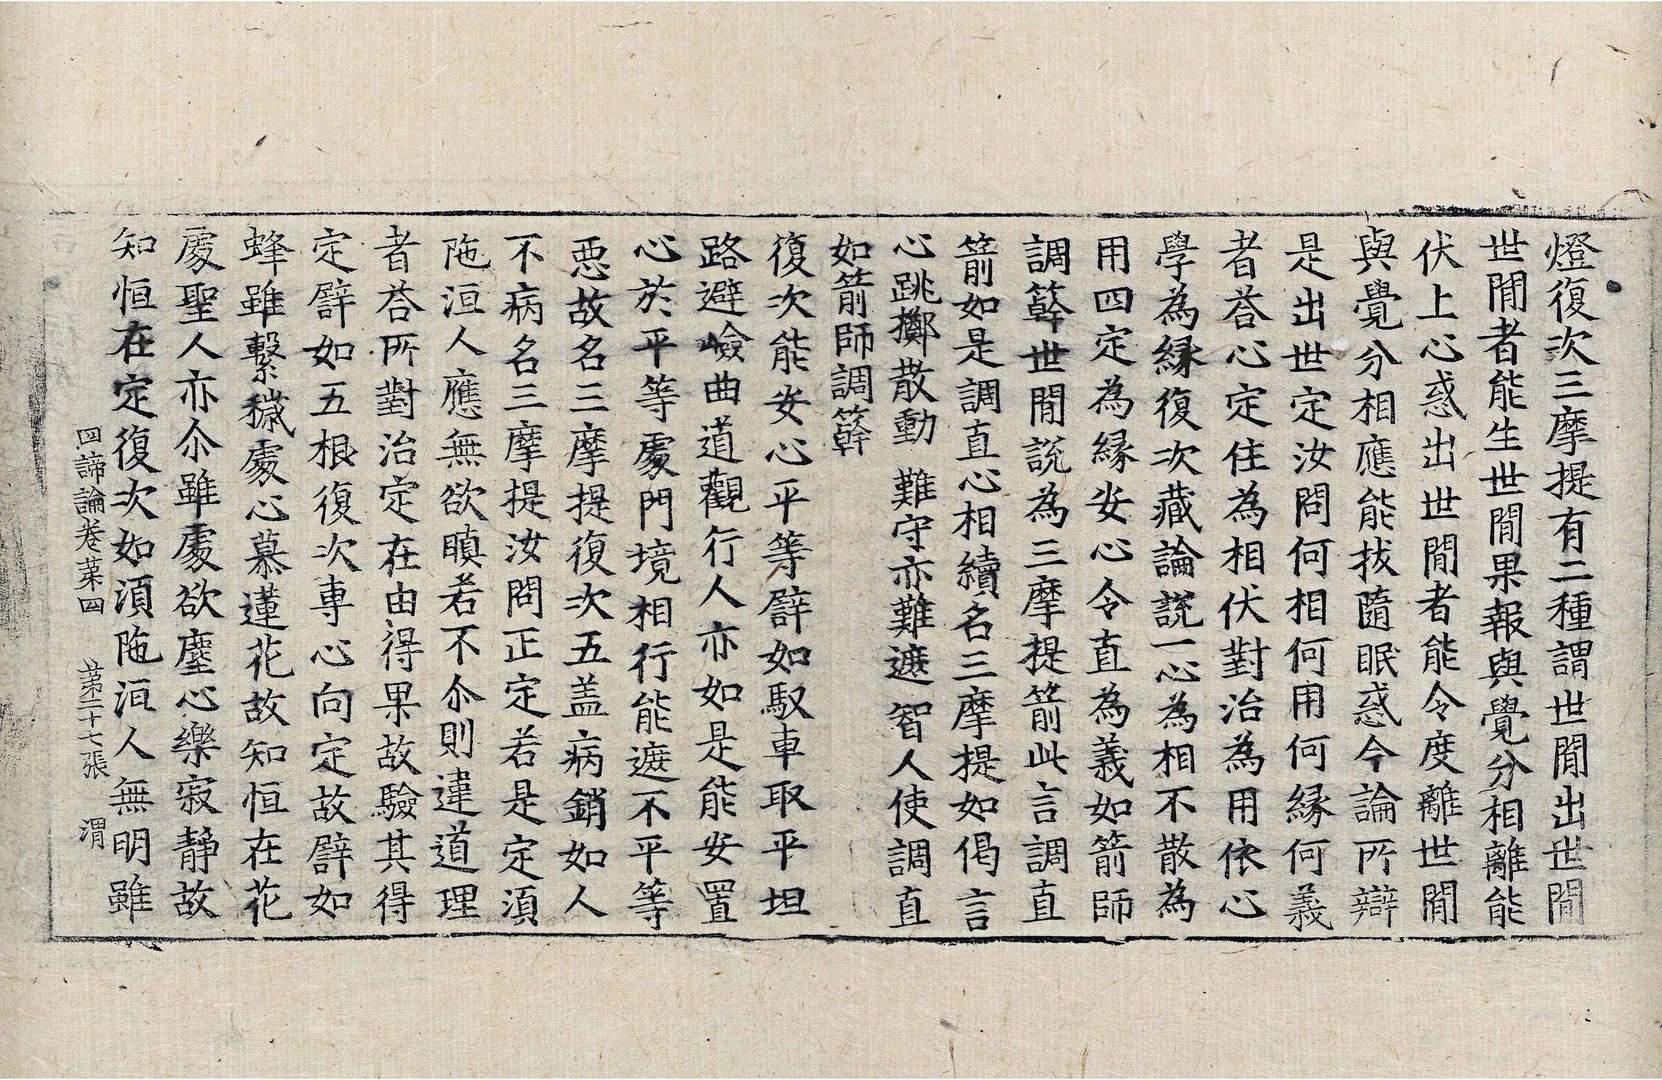 燈復次三摩提有二種謂世間出世間
世間者能生世間果報與覺分相離能
伏上心惑出世間者能令度離世間
與覺分相應能拔隨眠惑今論所辯
是出世定汝問何相何用何緣何義
者荅心定住為相伏對治為用依心
學為緣復次藏論說一心為相不散為
用四定為緣安心令直為義如箭師
調簳世間說為三摩提箭此言調直
箭如是調直心相續名三摩提如偈言
心跳擲散動　難守亦難遮智人使調直
如箭師調簳
復次能安心平等譬如馭車取平坦
路避嶮曲道觀行人亦如是能安置
心於平等處門境相行能遮不平等
惡故名三摩提復次五盖病銷如人
不病名三摩提汝問正定若是定須
陁洹人應無欲瞋若不尒則違道理
者荅所對治定在由得果故驗其得
定譬如五根復次專心向定故譬如
蜂雖繫穢處心慕蓮花故知恒在花
處聖人亦尒雖處欲塵心樂寂靜故
知恒在定復次如須陁洹人無明雖
四諦論卷苐四　苐二十七張　渭